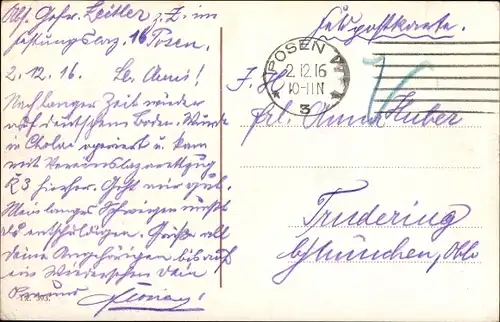 Abs. Gefr. Zeitler z. Z. im
Festungslaz. 16 Posen.
2.12.16. Lb. Anni!
Nach langer Zeit wieder
auf deutschem Boden. Wurde
in Cholm operiert u. kam
mit Vereinslazarettzug
K3 hierher. Geht mir gut.
Mein langes Schweigen mußt
du entschuldigen. Grüße all
deine Angehörigen bis auf
ein Wiedersehen dein
Feldpostkarte.
POSEN
2.12.16
10-11 N
3
Frl. Anna Huber
Trudering
b/München, Obb